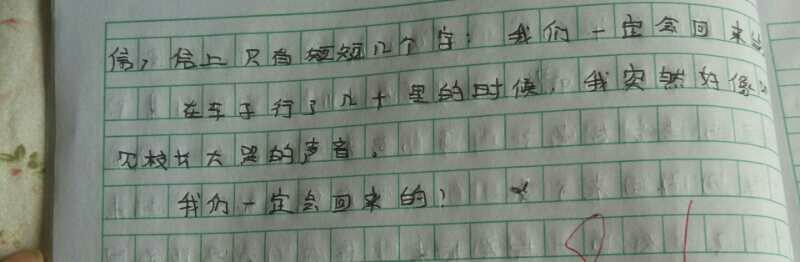 信，信上只有短短几个字：我们一定会回来的
在车子行了几十里的时候，我突然好像听
见校长大哭的声音。
我们一定会回来的！